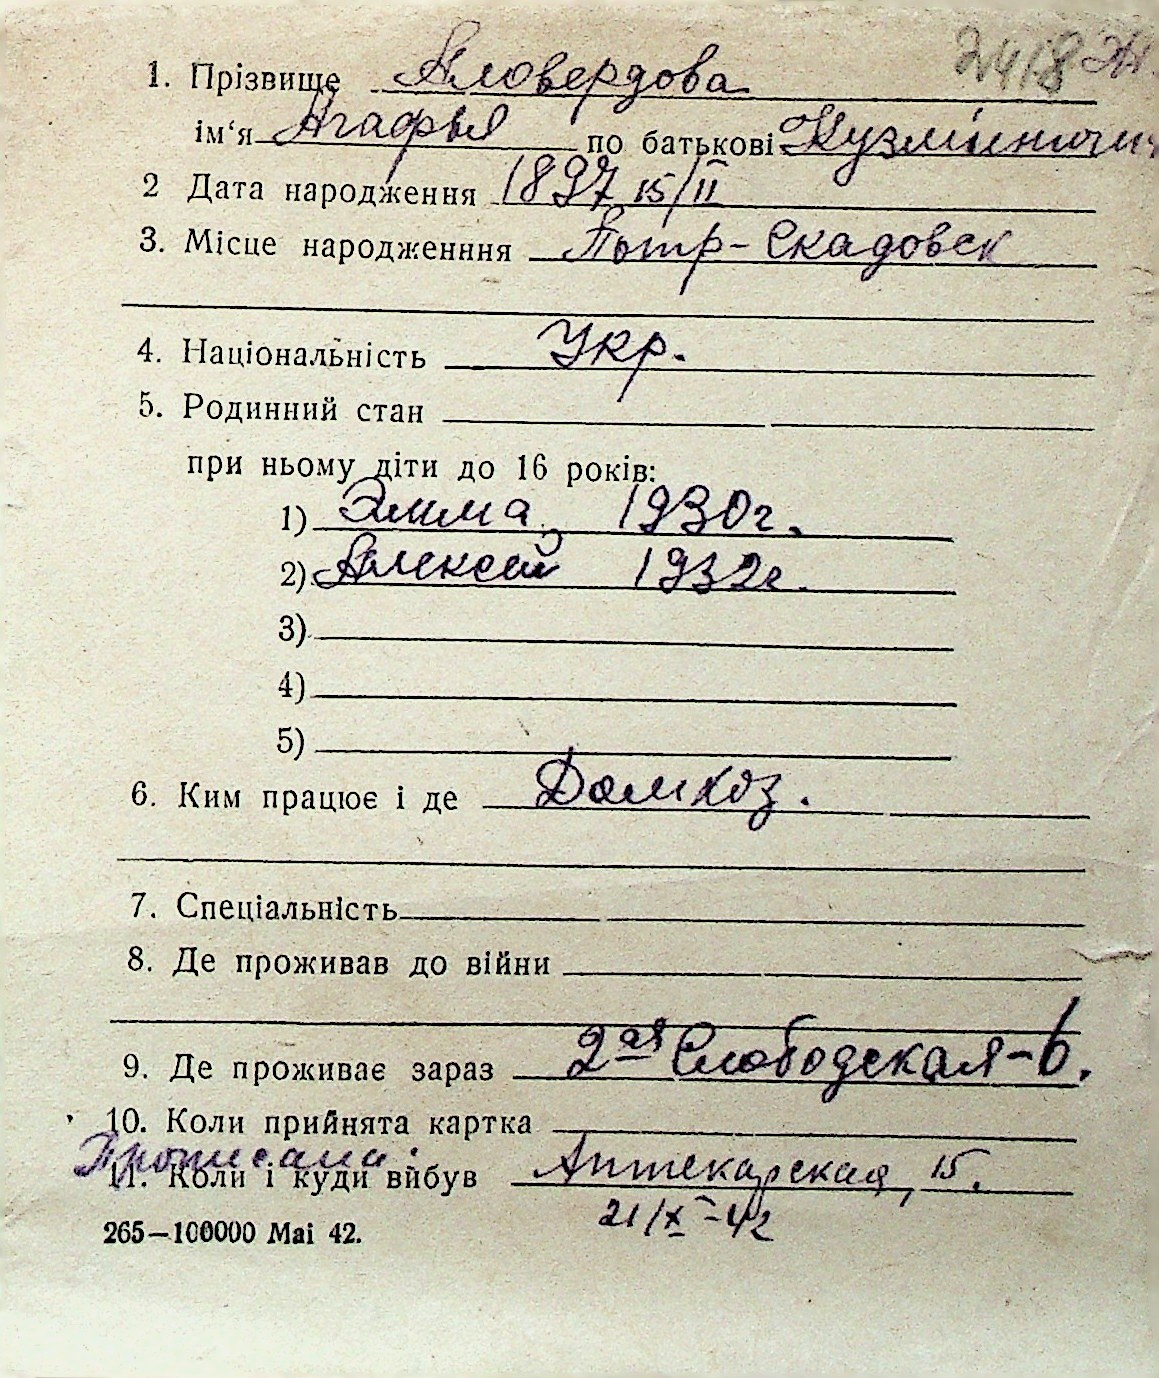 2418 Эк.
1. Прізвище Аловердова
ім'я Агафья по батькові Кузмінични
2 Дата народження 1897 15/II
3. Місце народженння Потр-Скадовск
4. Національність Укр.
5. Родинний стан
при ньому діти до 16 років:
1) Эмма, 1930г.
2) Алексей 1932г.
3)
4)
5)
6. Ким працює і де Домхоз.
7. Спеціальність
8. Де проживав до війни
9. Де проживає зараз 2ая Слободская-6.
10. Коли прийнята картка
Прописана:
11. Коли і куди вибув Аптекарская, 15.
21/X-42
265—100000 Mai 42.